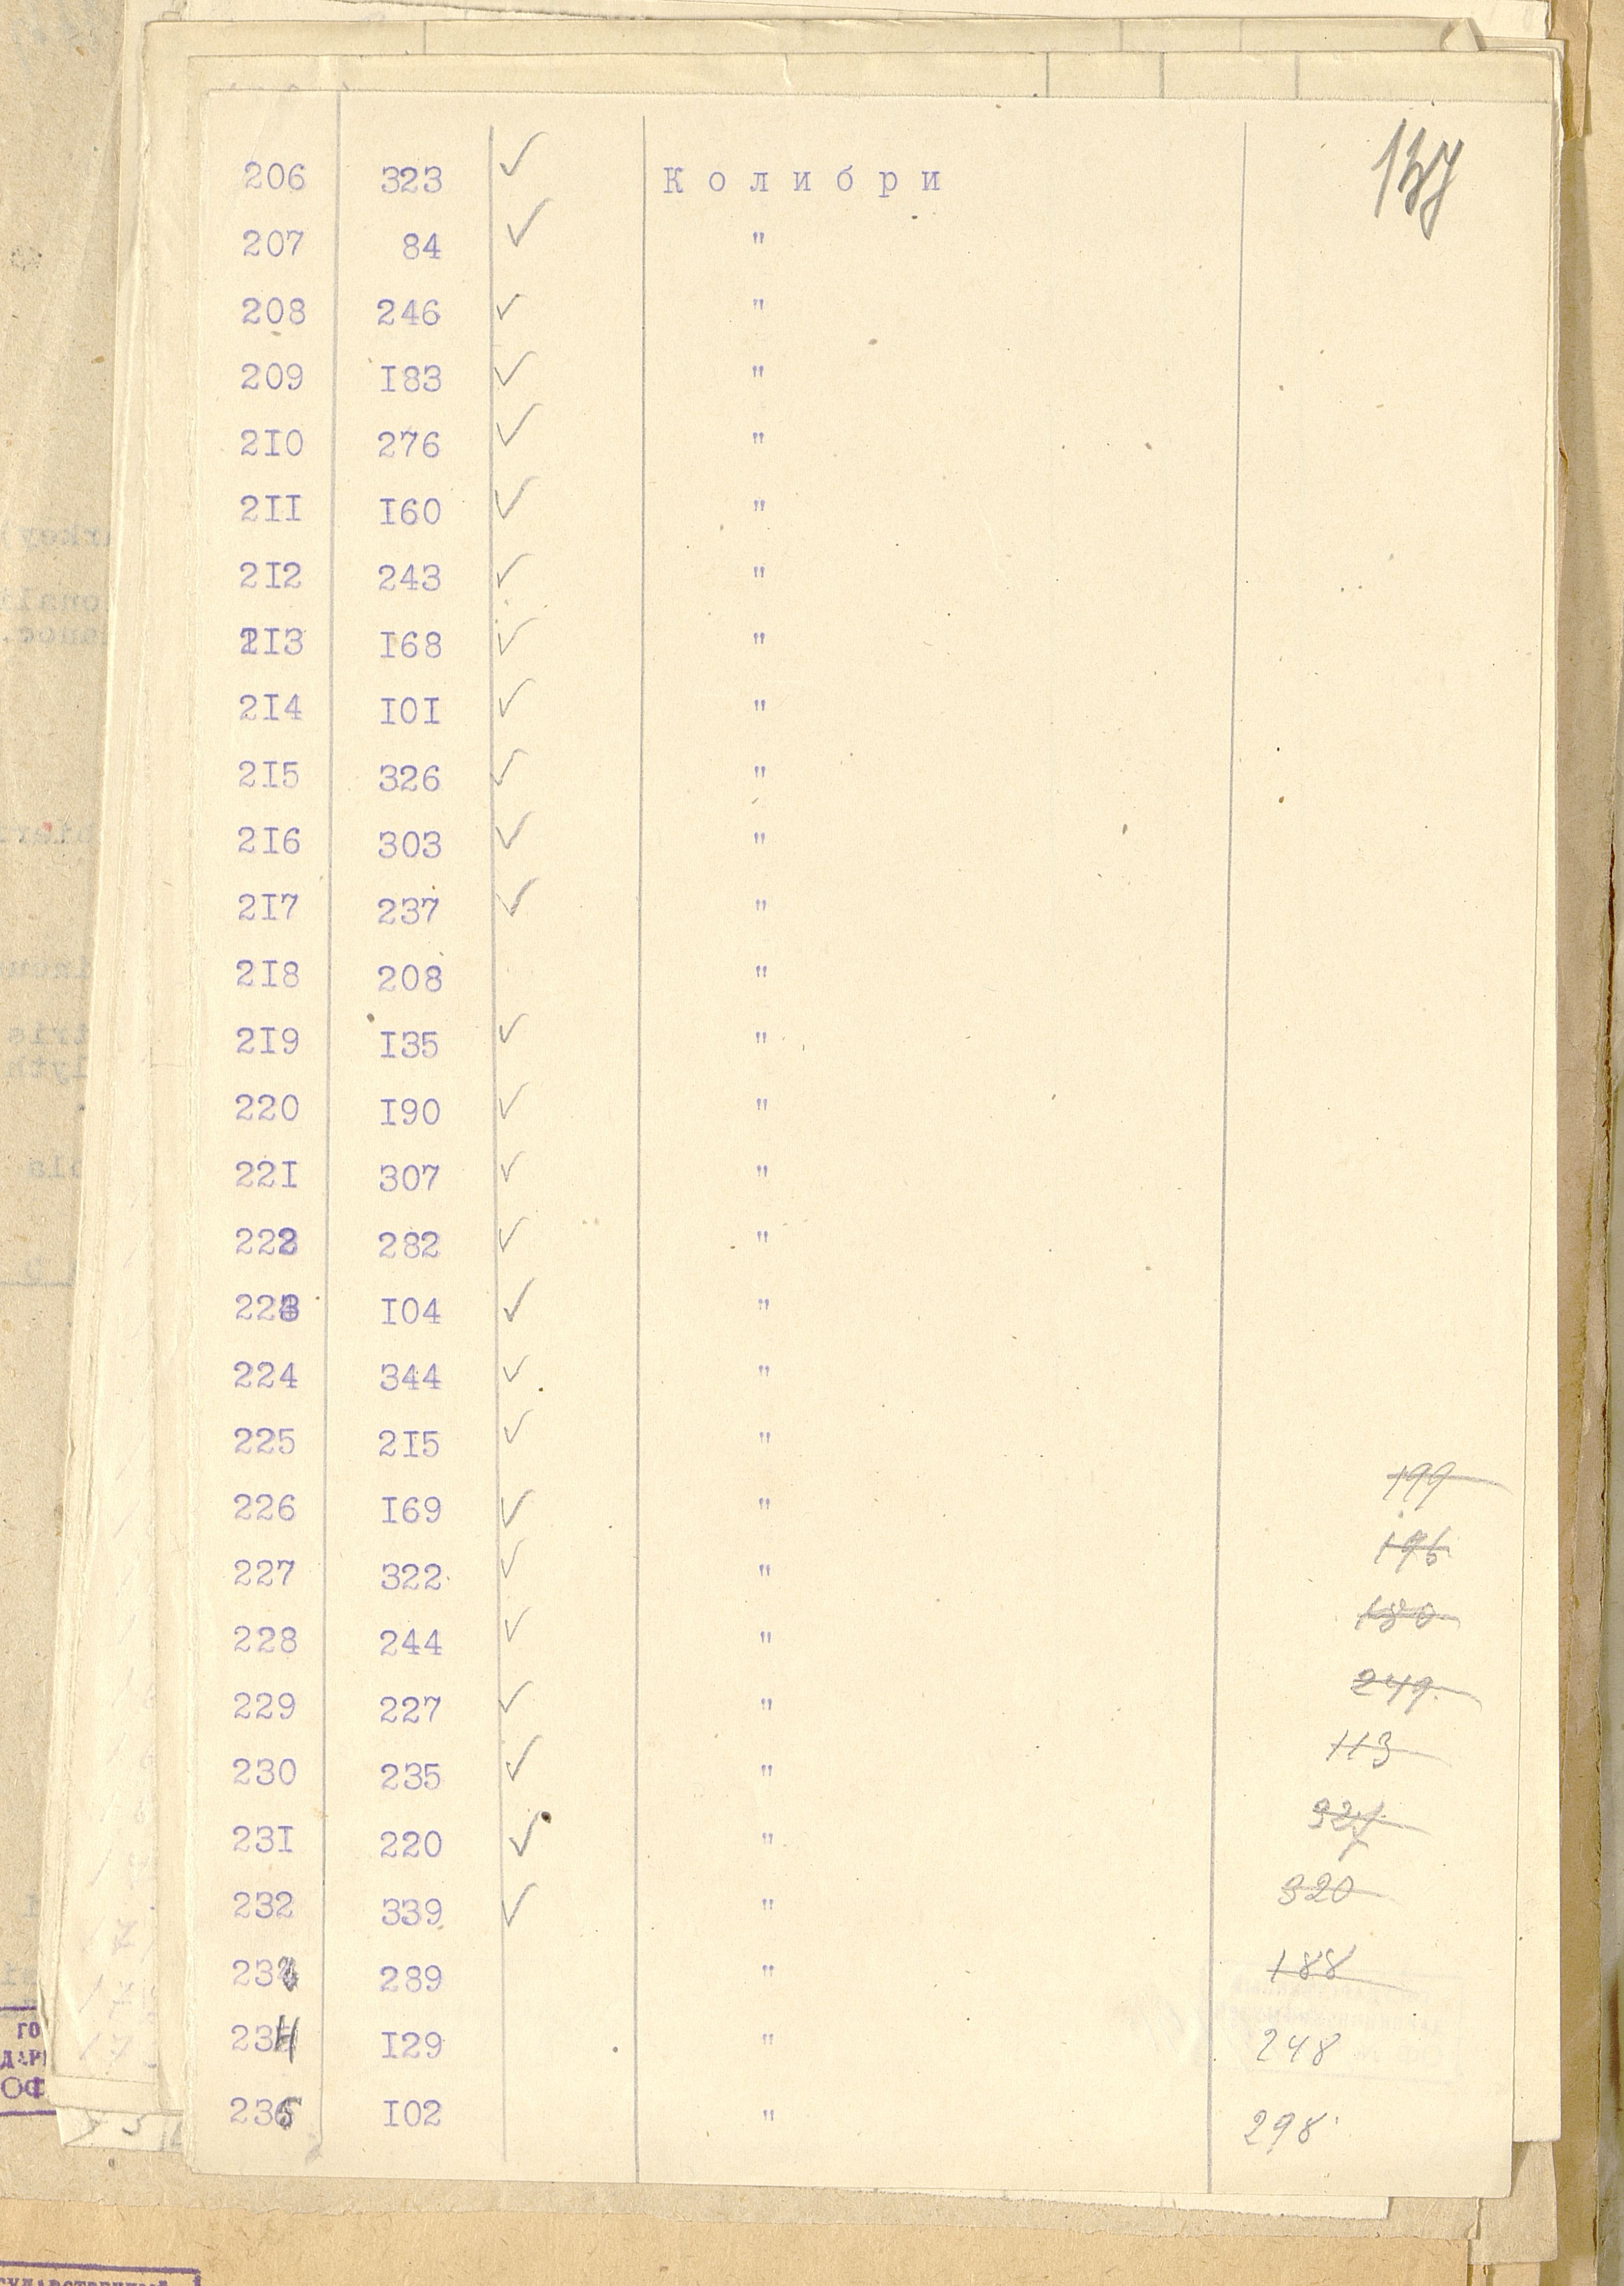 137
206 323 ✓ Колибри
207 84 ✓ "
208 246 ✓ "
209 I83 ✓ "
2I0 276 ✓ "
2II I60 ✓ "
2I2 243 ✓ "
2I3 I68 ✓ "
2I4 I0I ✓ "
2I5 326 ✓ "
2I6 303 ✓ "
2I7 237 ✓ "
2I8 208 "
2I9 I35 ✓ "
220 I90 ✓ "
22I 307 ✓ "
222 282 ✓ "
223 I04 ✓ "
224 344 ✓ "
225 2I5 ✓ "
199
226 I69 ✓ "
196
227 322 ✓ "
180
228 244 ✓ "
249
229 227 ✓ "
113
230 235 ✓ "
327
23I 220 ✓ "
320
232 339 ✓ "
188
233 289 "
248
234 I29 "
298
235 I02 "